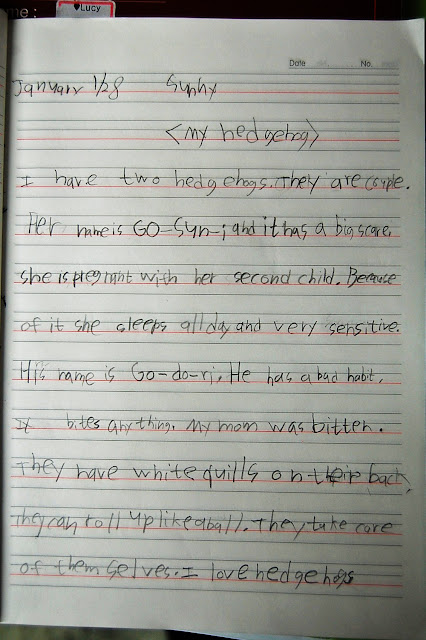 me :
♥Lucy
Date No.
January 1/28 Sunny
<my hedgehog>
I have two hedgehogs. They are couple.
Her name is GO-Sun-i and it has a big scare.
she is pregnant with her second child. Because
of it she sleeps all day and very sensitive.
His name is Go-do-ri. He has a bad habit.
It bites anything. My mom was bitten.
They have white quills on their back.
They can roll up like a ball. They take care
of themselves. I love hedgehogs